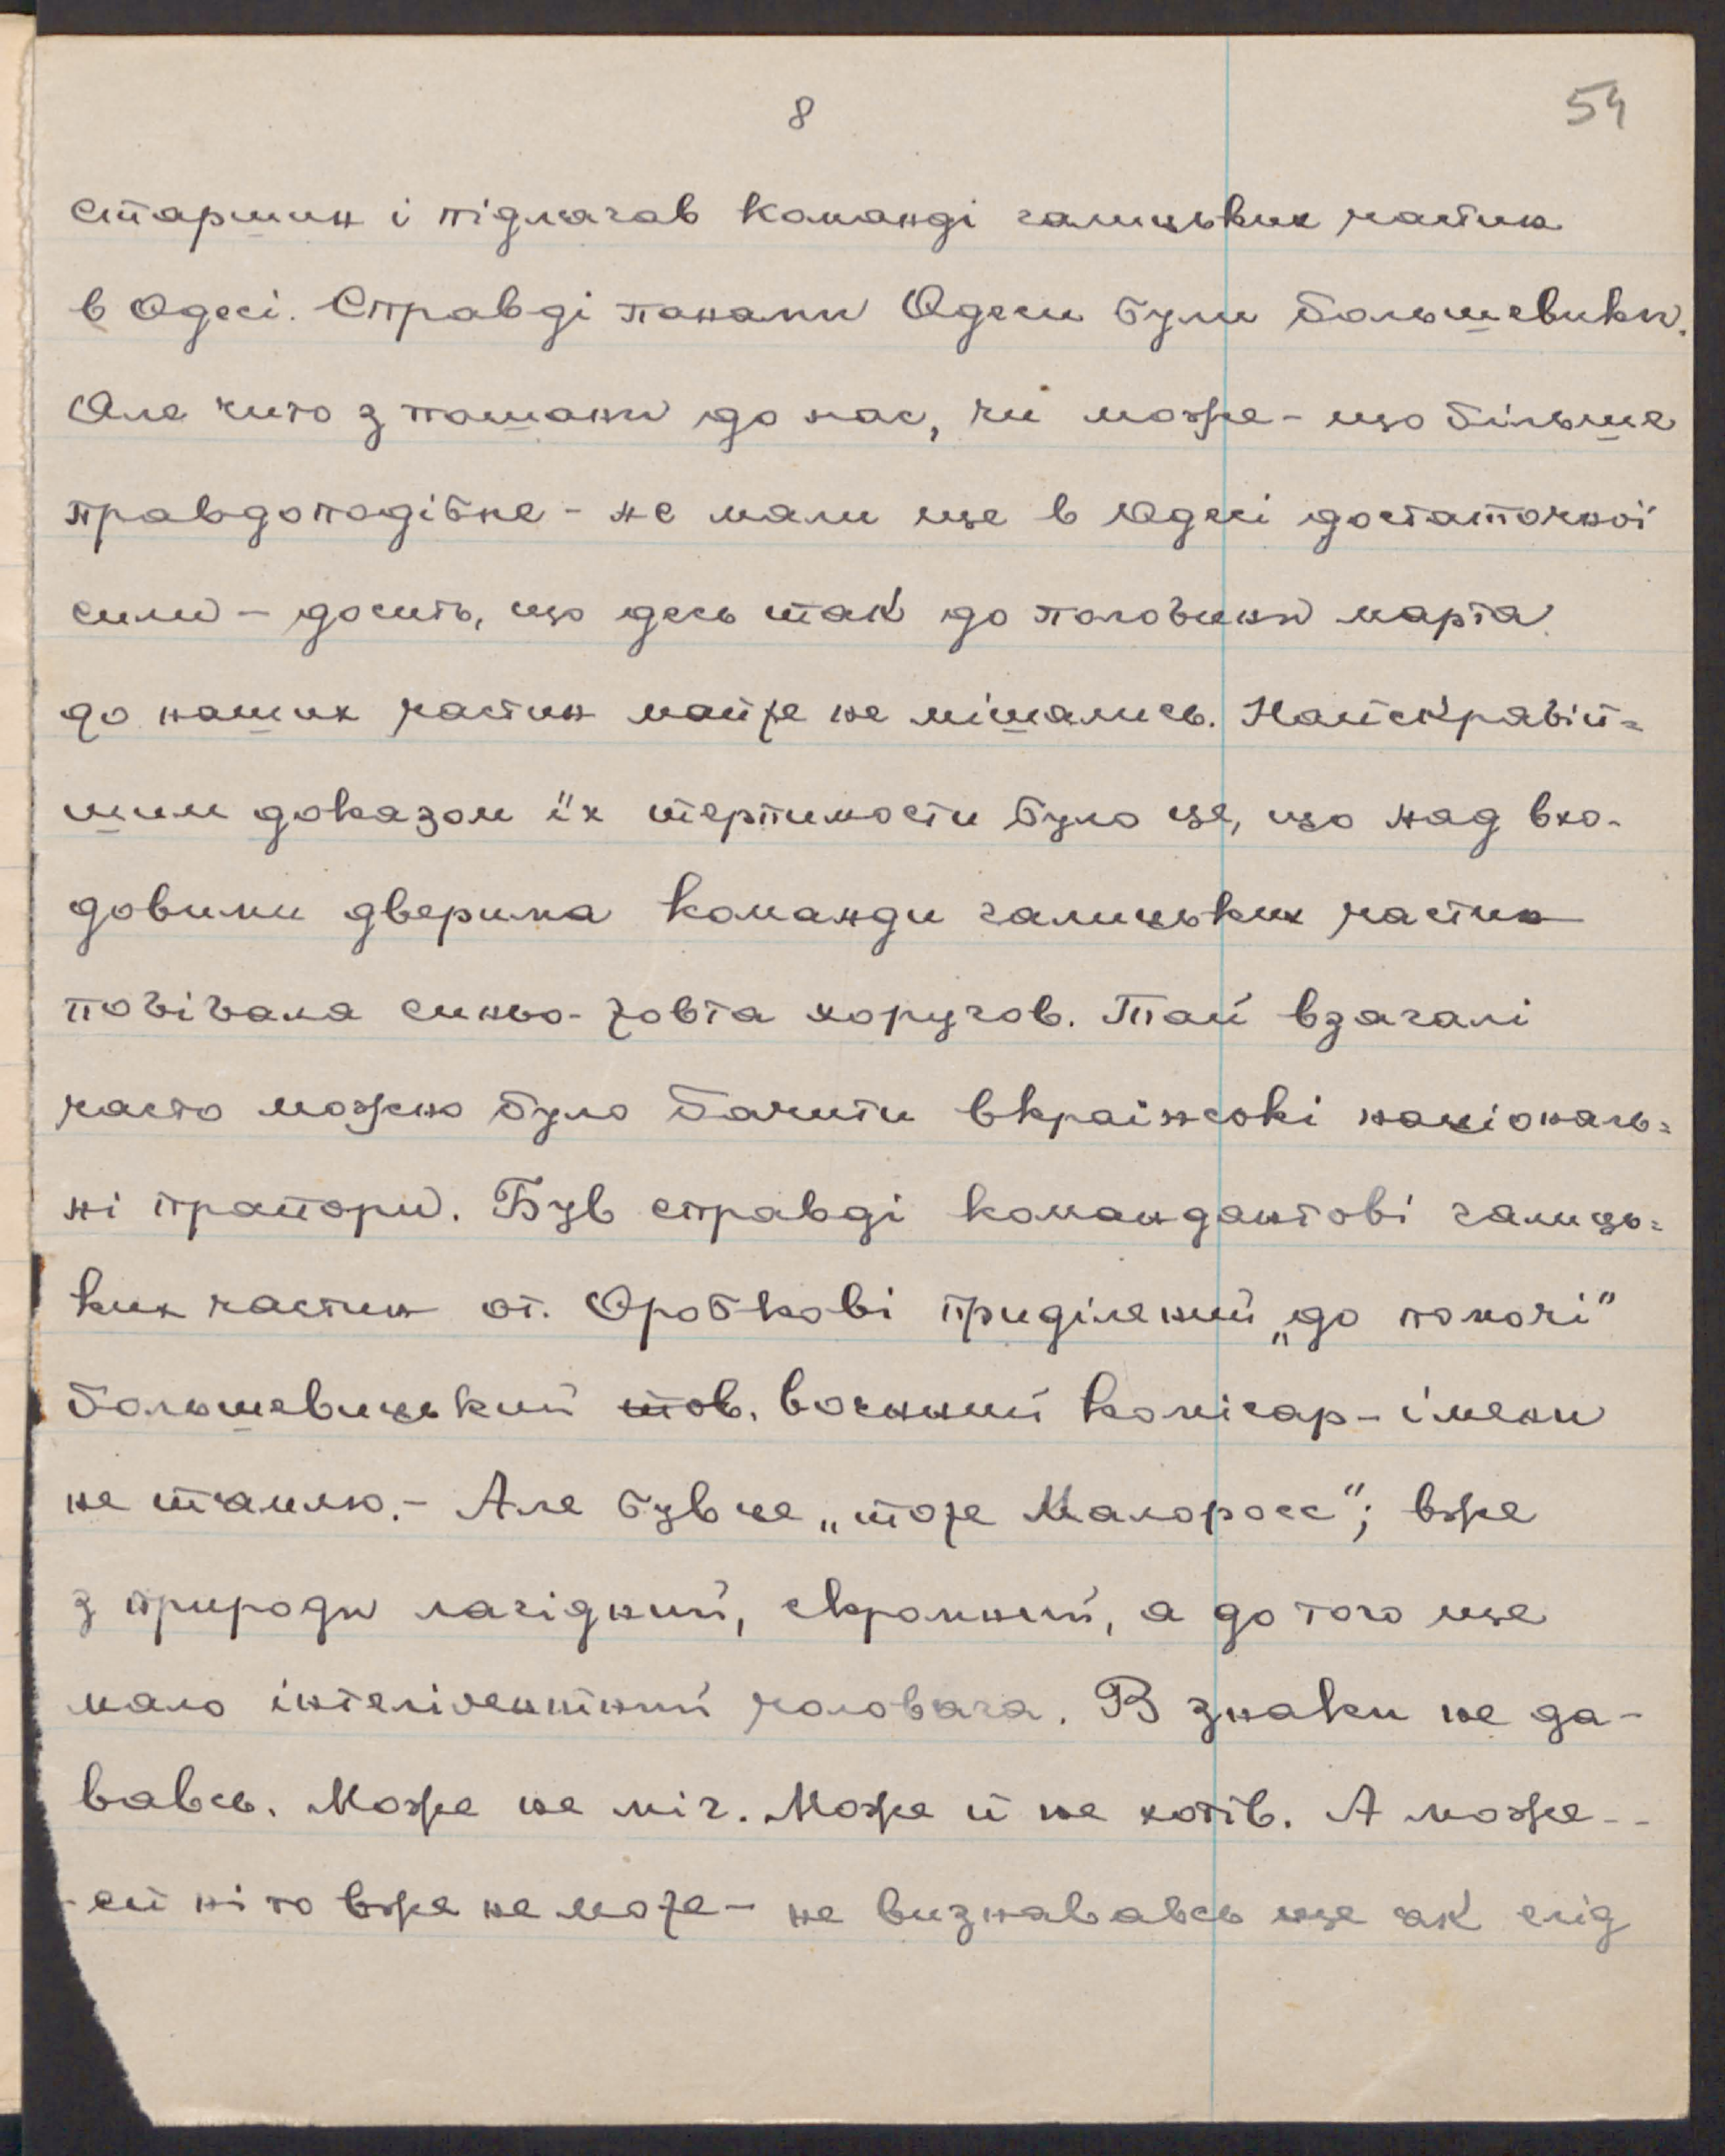 8
54
старшин і підлягав команді галицьких частин
в Одесі. Справді панами Одеси були большевики.
Але чито з пошани до нас, чи може - що більше
правдоподібне - не мали ще в Одесі достаточної
сили - досить, що десь так до половини марта
до наших частин майже не мішались. Найскравій=
шим доказом їх терпимости було це, що над вхо-
довими дверима команди галицьких частин
повівала синьо-жовта хоругов. Тай взагалі
часто можно було бачити вкраінські національ=
ні прапори. Був справді командантові галиць=
ких частин от. Оробкові приділений „до помочі“
большевицький тов. воєнний комісар - імени
не тямлю. - Але був це „тоже Малоросс“; вже
з природи лагідний, скромний, а до того ще
мало інтелігентний чоловяга. В знаки не да-
вавсь. Може не міг. Може й не хотів. А може --
- ей ні то вже не може - не визнававсь ще як слід